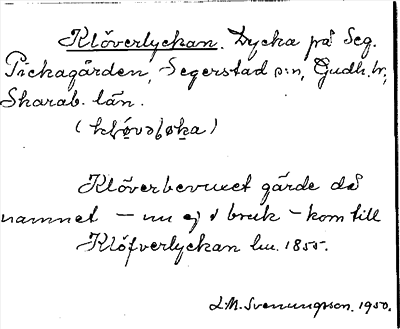 Klöverlyckan. Lycka på Seg.
Pickagården, Segerstad s:n, Gudh. hr,
Skarab. län.
Klöverbevuxet gärde då
namnet – nu ej i bruk – kom till
Klöfverlyckan lm. 1855.
L.M. Svenungsson. 1950.